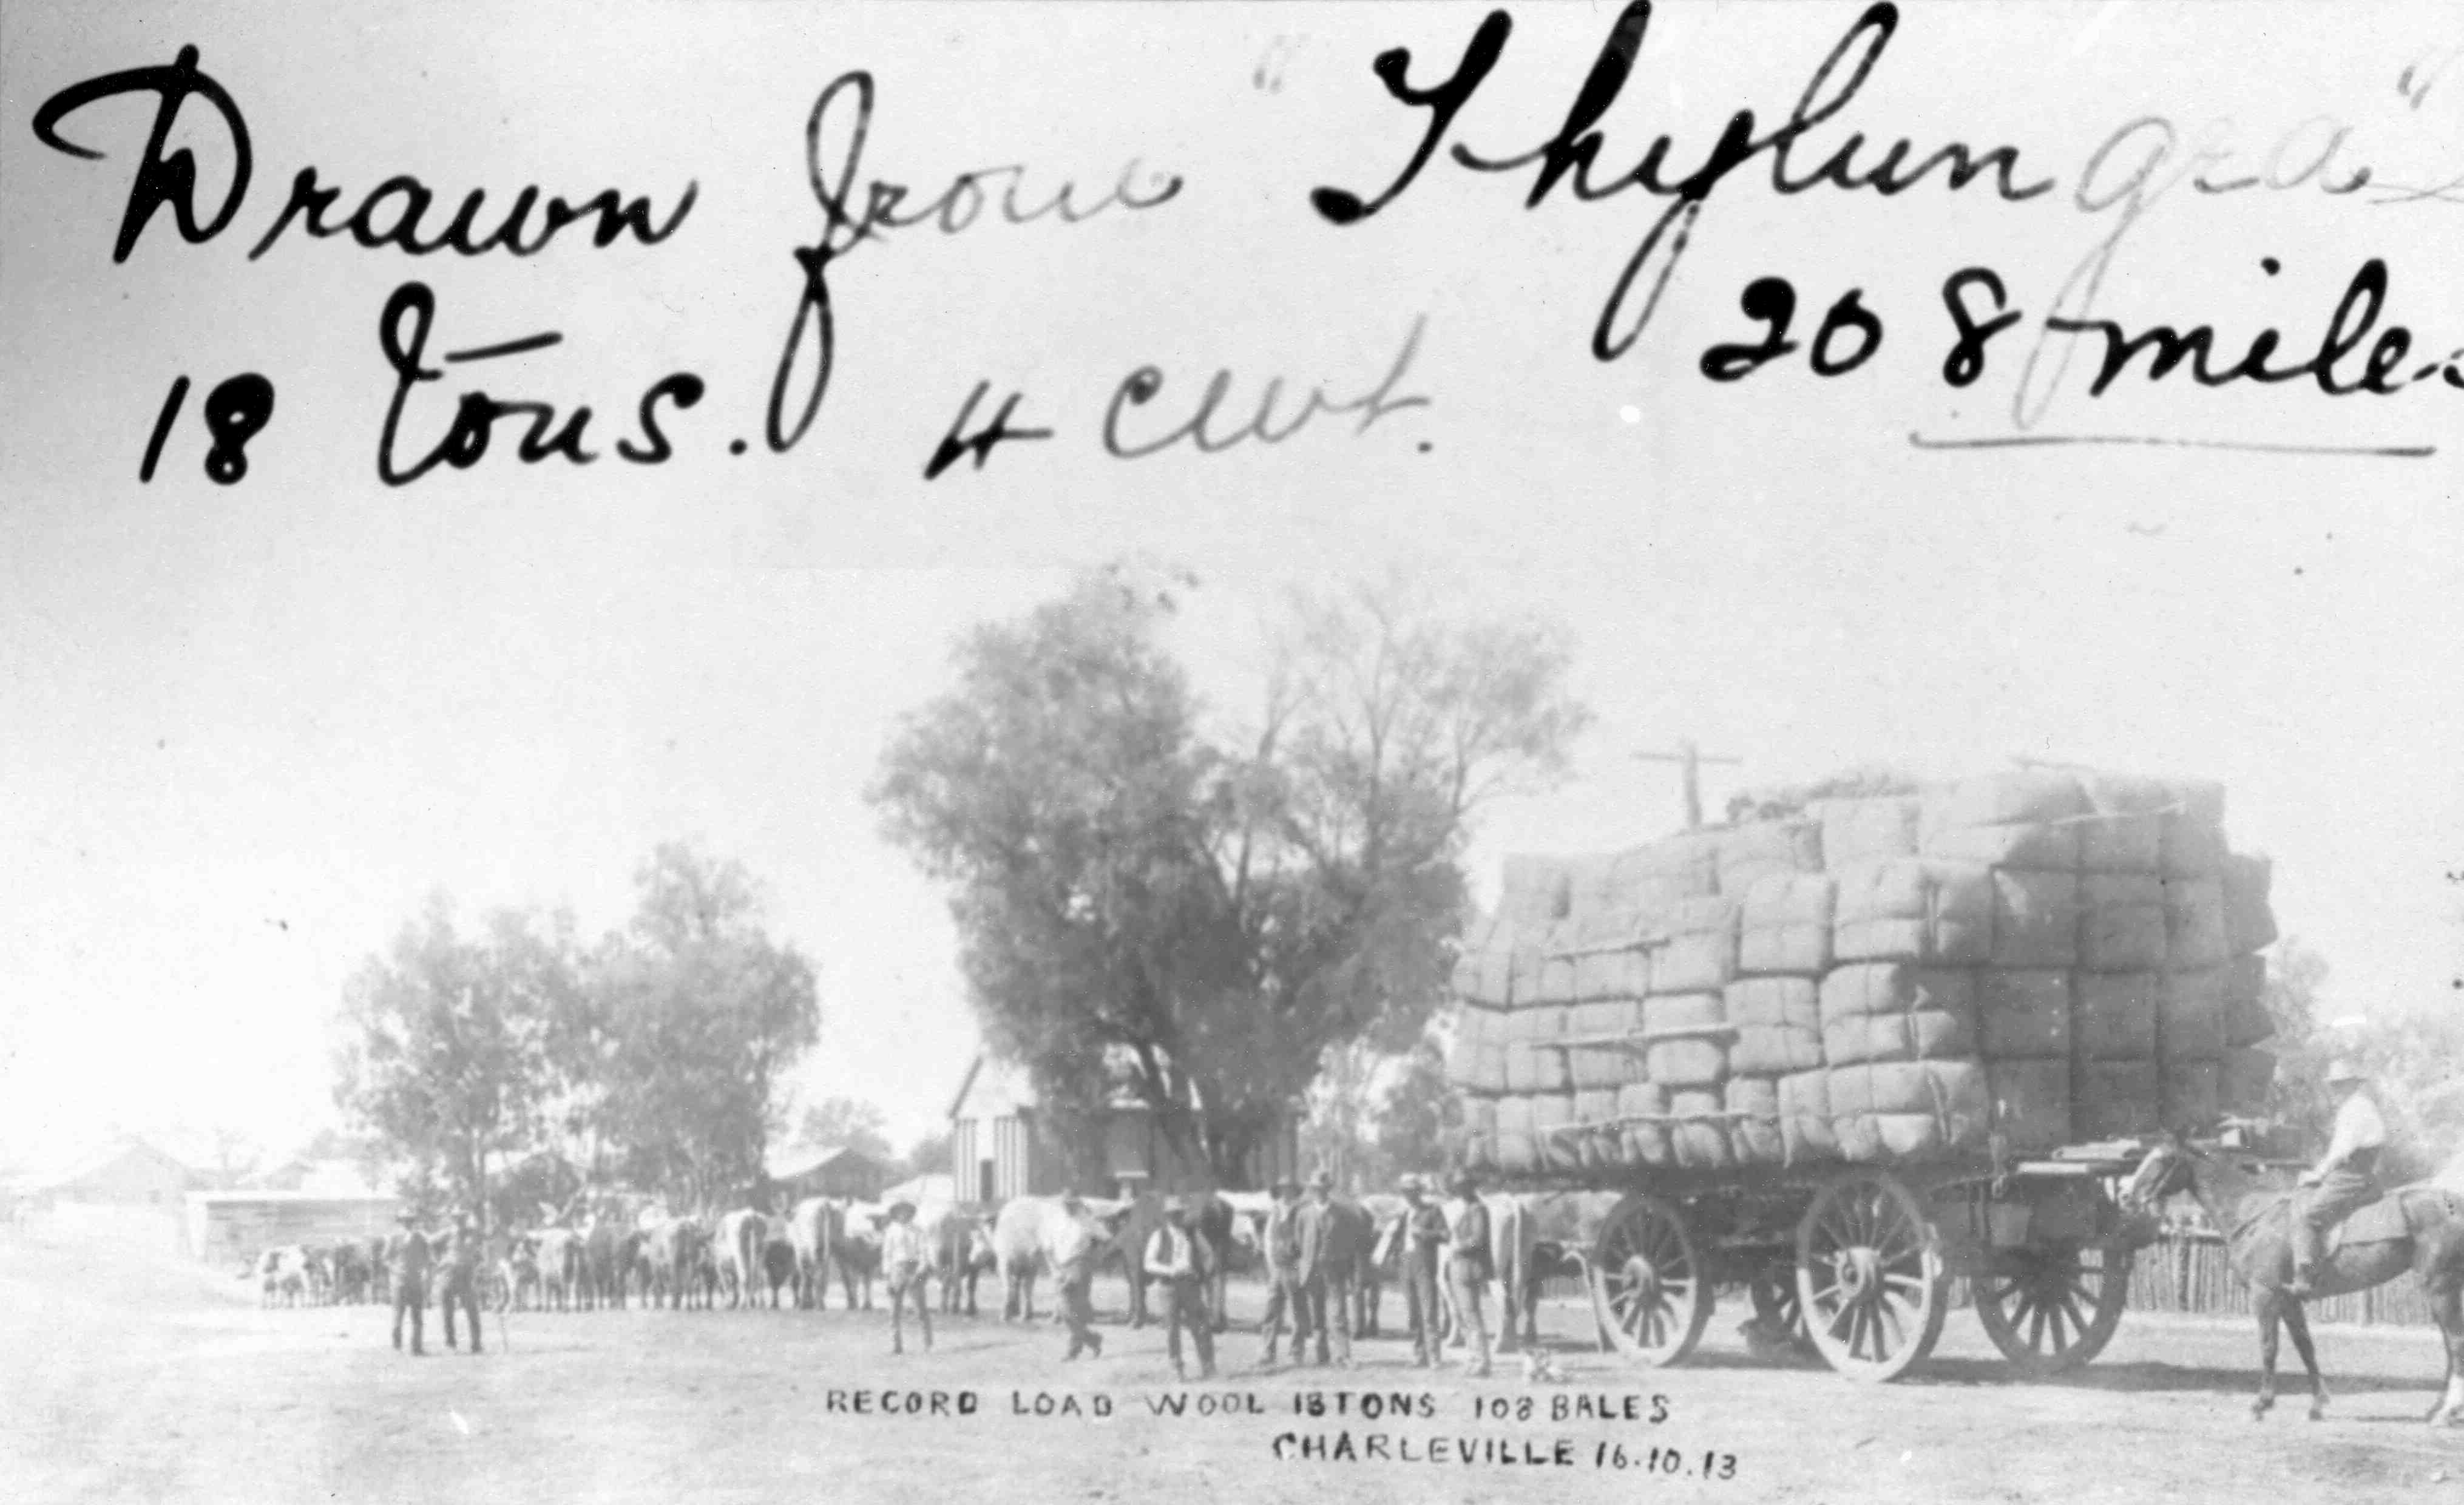 Drawn from "Thylungra"
18 tons. 4 cwt. 208 miles
RECORD LOAD WOOL 18 TONS 108 BALES
CHARLEVILLE 16.10.13